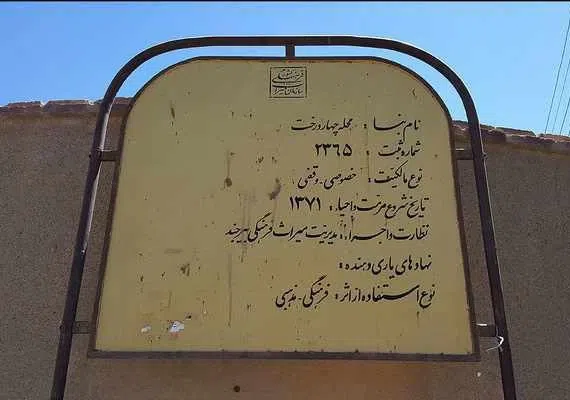 سازمان میراث فرهنگی
نام بنا : محله چهاردرخت
شماره ثبت ۲۳۶۵
نوع مالکیت : خصوصی-وقفی
تاریخ شروع مرمت و احیاء : ۱۳۷۱
نظارت و اجرا : مدیریت میراث فرهنگی بیرجند
نهادهای یاری دهنده :
نوع استفاده از اثر : فرهنگی-مذهبی